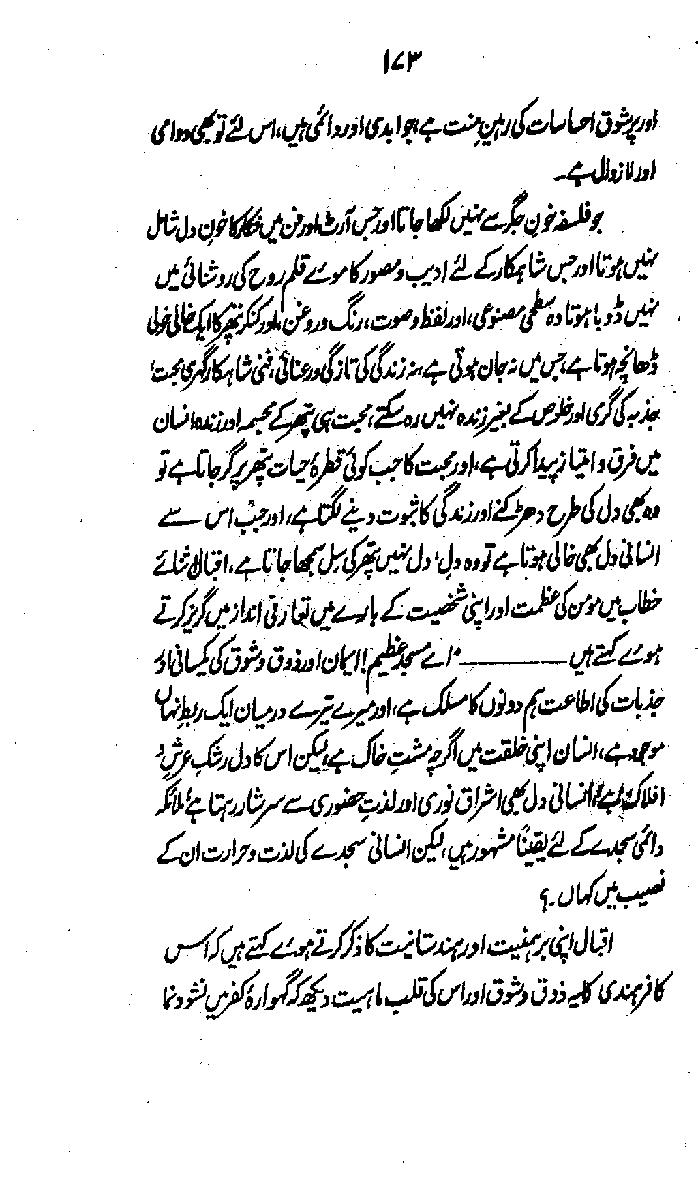 ۱۷۳
اور پرشوق احساسات کی رہینِ منت ہے جو ابدی اور دائمی ہیں، اس لئے تو بھی دوامی
اور لازوال ہے۔
جو فلسفہ خونِ جگر سے نہیں لکھا جاتا اور جس آرٹ اور فن میں فنکار کا خونِ دل شامل
نہیں ہوتا اور جس شاہکار کے لئے ادیب و مصور کا موئے قلم روح کی روشنائی میں
نہیں ڈوبا ہوتا وہ سطحی مصنوعی، اور لفظ و صوت، رنگ و روغن، اور کنکر پتھر کا ایک خالی خولی
ڈھانچہ ہوتا ہے، جس میں نہ جان ہوتی ہے، نہ زندگی کی تازگی و رعنائی، فنی شاہکار گہری محبت،
جذبہ کی گرمی اور خلوص کے بغیر زندہ نہیں رہ سکتے، محبت ہی پتھر کے مجسمہ اور زندہ انسان
میں فرق و امتیاز پیدا کرتی ہے، اور محبت کا جب کوئی قطرۂ حیات پتھر پر گر جاتا ہے تو
وہ بھی دل کی طرح دھڑکنے اور زندگی کا ثبوت دینے لگتا ہے، اور جب اس سے
انسانی دل بھی خالی ہوتا ہے تو وہ دل، دل نہیں پتھر کی سل سمجھا جاتا ہے، اقبالؒ اثنائے
خطاب میں مومن کی عظمت اور اپنی شخصیت کے بارے میں تعارفی انداز میں گریز کرتے
ہوئے کہتے ہیں ـــــــــــ "اے مسجدِ عظیم! ایمان اور ذوق و شوق کی یکسانی اور
جذبات کی اطاعت ہم دونوں کا مسلک ہے، اور میرے تیرے درمیان ایک ربطِ نہاں
موجود ہے، انسان اپنی خلقت میں اگرچہ مشتِ خاک ہے، لیکن اس کا دل رشکِ عرش و
افلاک ہے، انسانی دل بھی اشراقِ نوری اور لذتِ حضوری سے سرشار رہتا ہے، ملائکہ
دائمی سجدے کے لئے یقیناً مشہور ہیں، لیکن انسانی سجدے کی لذت و حرارت ان کے
نصیب میں کہاں۔؟
اقبال اپنی برہمنیت اور ہندستانیت کا ذکر کرتے ہوئے کہتے ہیں کہ اس
کافر ہندی کا یہ ذوق و شوق اور اس کی قلب ماہیت دیکھ کہ گہوارۂ کفر میں نشوونما